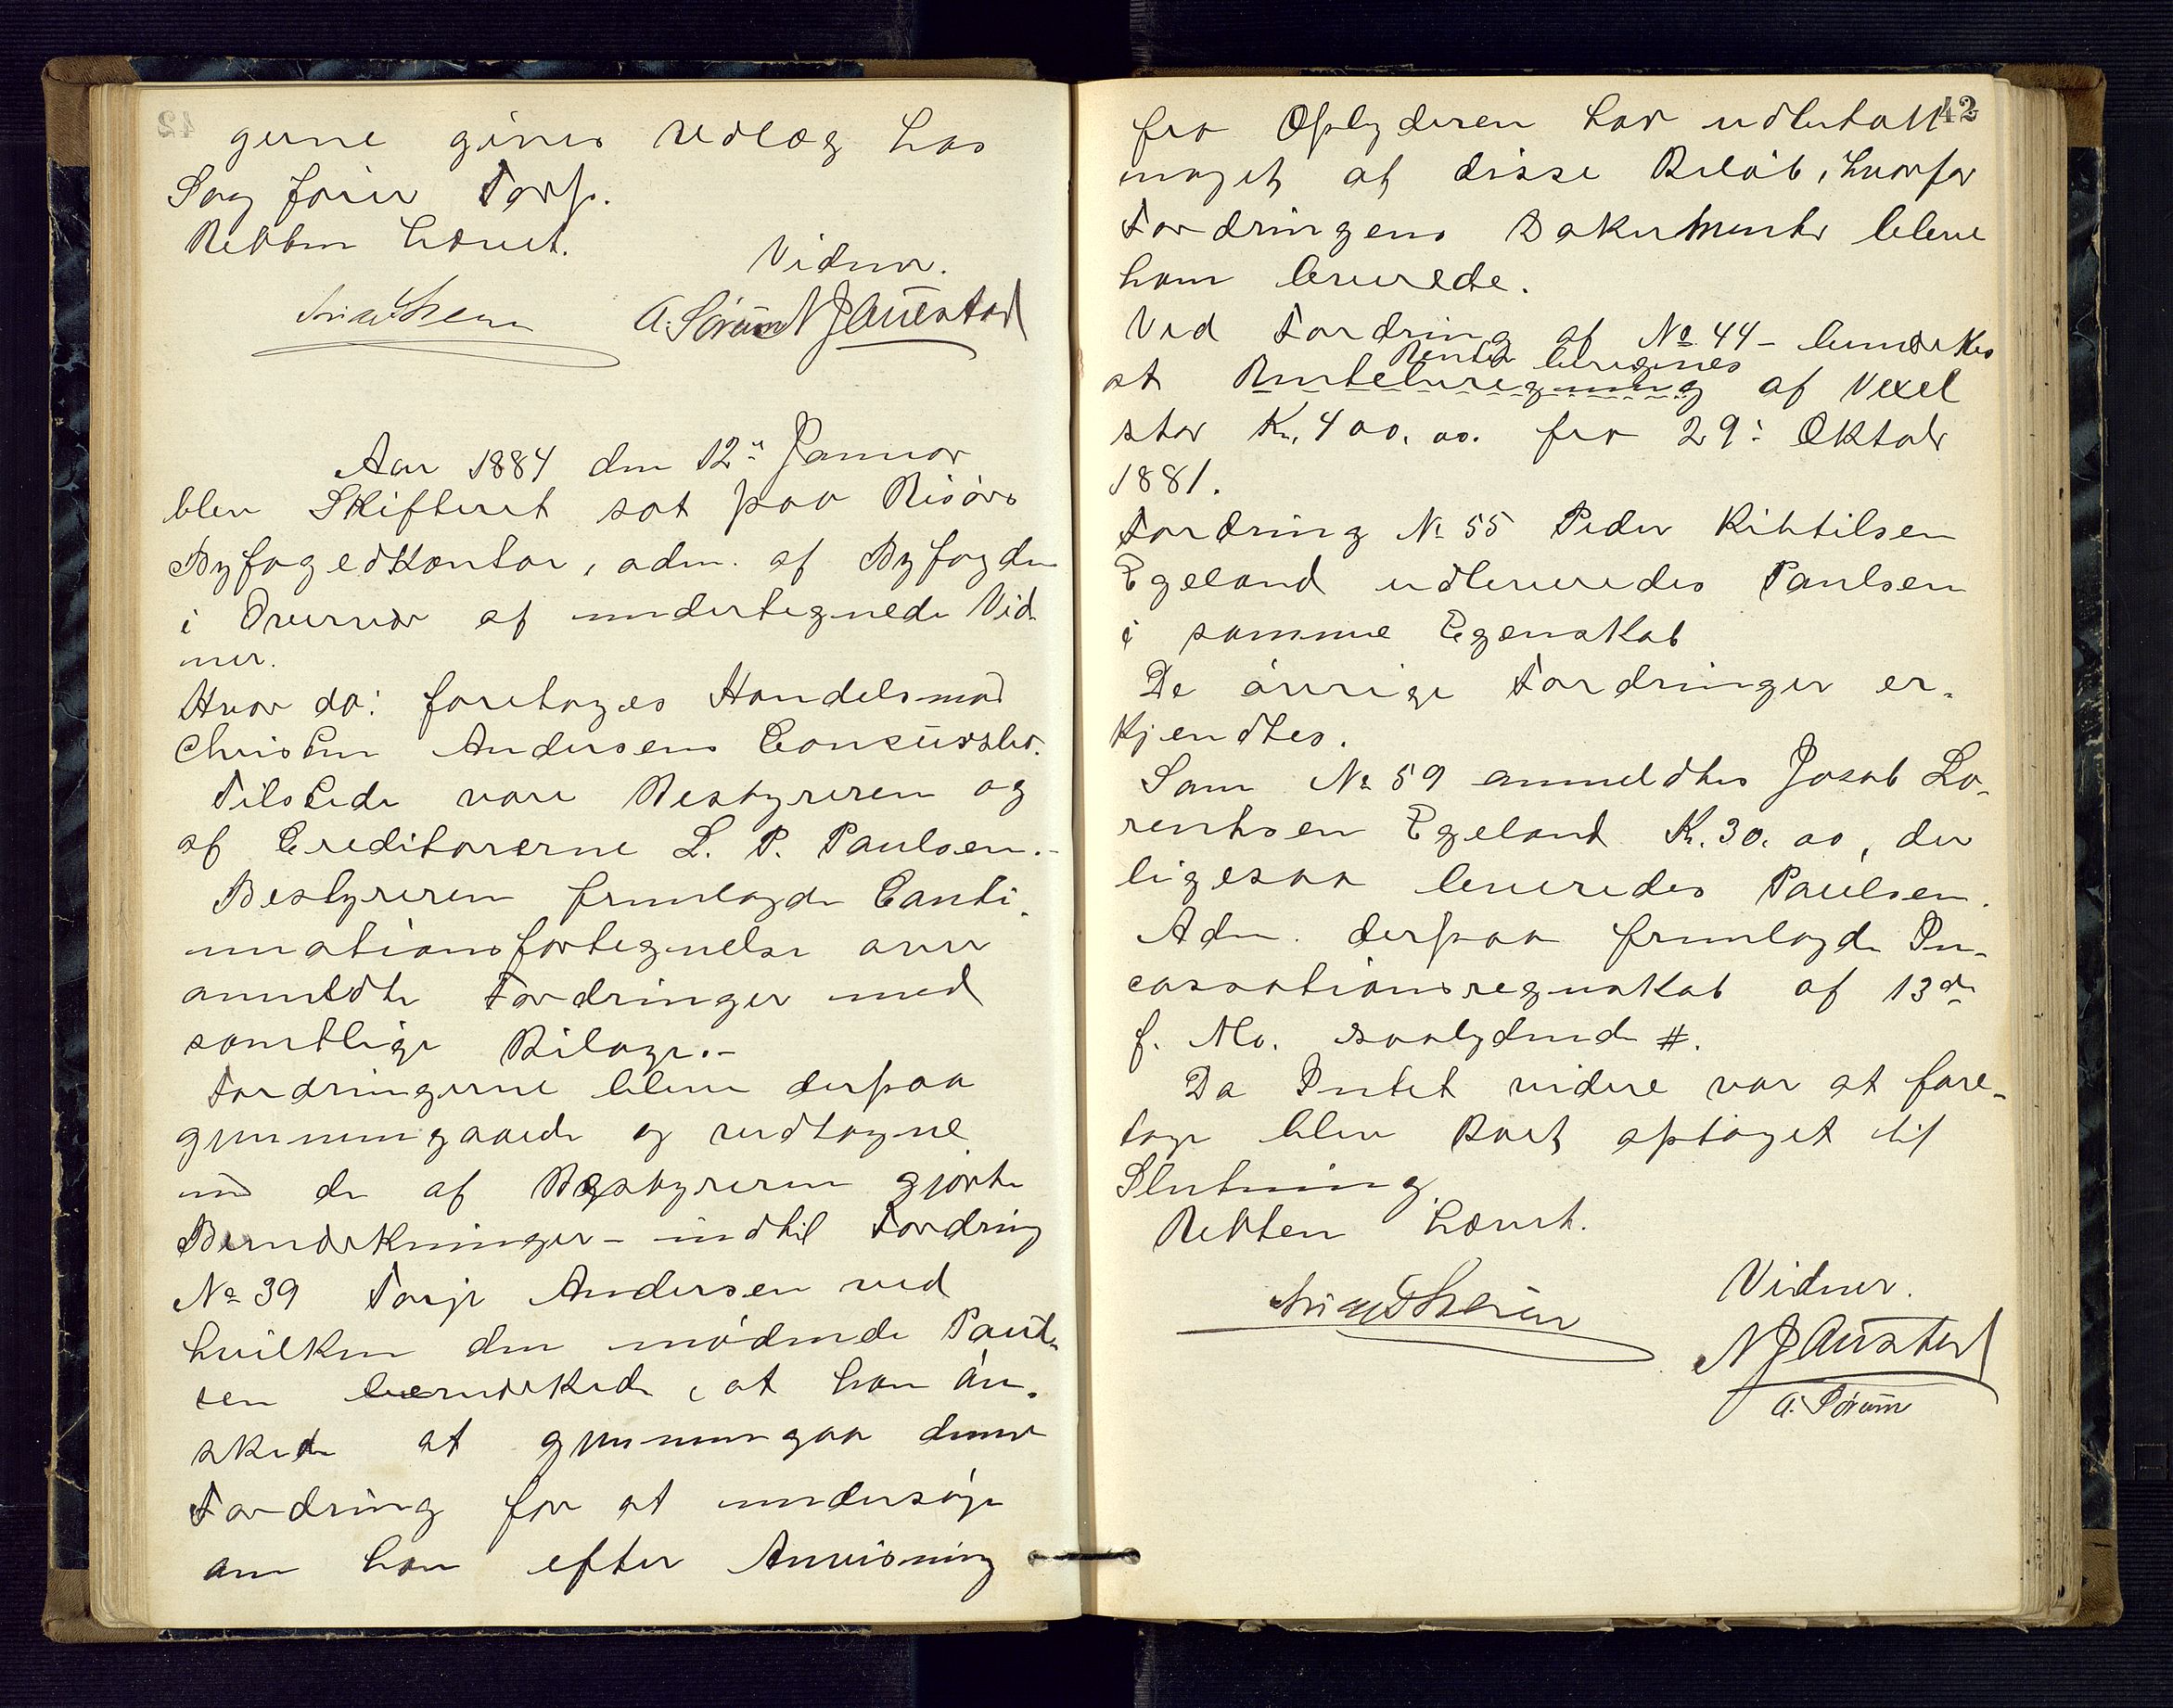 gerne gives Udlæg hos
Sagfører Torp.
Retten hævet.
Vidner.
A. Sørum NJAuestad
Aar 1884 den 12te Januar
blev Skifteret sat paa Risørs
Byfogedkontor, adm. af Byfogden
i Overvær af undertegnede Vid
ner.
Hvor da: foretoges Handelsmand
Christen Andersens Concursbo.
Tilstede vare Bestyreren og
af Creditorerne L. P. Paulsen.-
Bestyreren fremlagde Conti-
nuationsfortegnelse over
anmeldte Fordringer med
samtlige Bilage.-
Fordringerne bleve derpaa
gjennemgaaede og vedtagne
med de af Bestyreren gjorte
Bemærkninger - indtil Fordring
No 39 Terje Andersen ved
hvilken den mødende Paul-
sen bemærkede, at han øn-
skede at gjennemgaa denne
Fordring for at undersøge
om han efter Anvisning
42
fra Opbyderen har udbetalt
noget af disse Beløb, hvorfor
Fordringens Dokumenter bleve
ham leverede.
Ved Fordring af No 44 - bemærkes
Renter beregnes
at Renteberegning af Vexel
stor Kr. 400.00. fra 29: Oktobr
1881.
Fordring No 55 Peder Kittilsen
Egeland udleveredes Paulsen
i samme Egenskab
De øvrige Fordringer er-
kjendtes.
Som No 59 anmeldtes Josab Lo-
rentsen Egeland Kr. 30.00, der
ligesaa leveredes Paulsen.
Adm. derpaa fremlagde In-
cassationsregnskab af 13de
f. M. saalydende #.
Da Intet videre var at fore-
tage blev Boet optaget til
Slutning
Retten hævet.
Vidner.
NJAuestad
A. Sørum